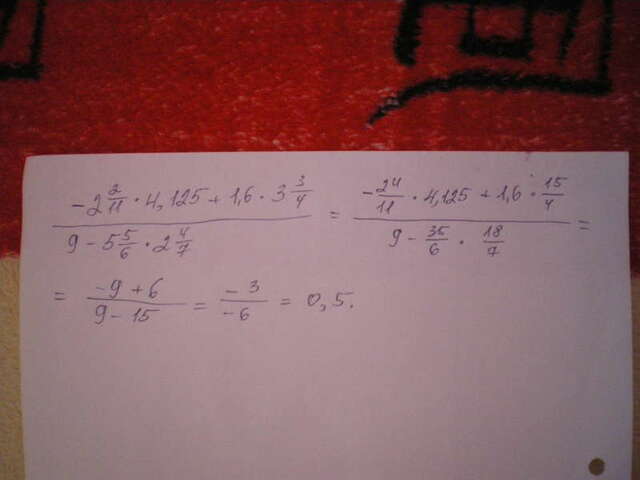 \frac{-2\frac{2}{11} \cdot 4,125 + 1,6 \cdot 3\frac{3}{4}}{9 - 5\frac{5}{6} \cdot 2\frac{4}{7}} = \frac{-\frac{24}{11} \cdot 4,125 + 1,6 \cdot \frac{15}{4}}{9 - \frac{35}{6} \cdot \frac{18}{7}} =
= \frac{-9 + 6}{9 - 15} = \frac{-3}{-6} = 0,5.